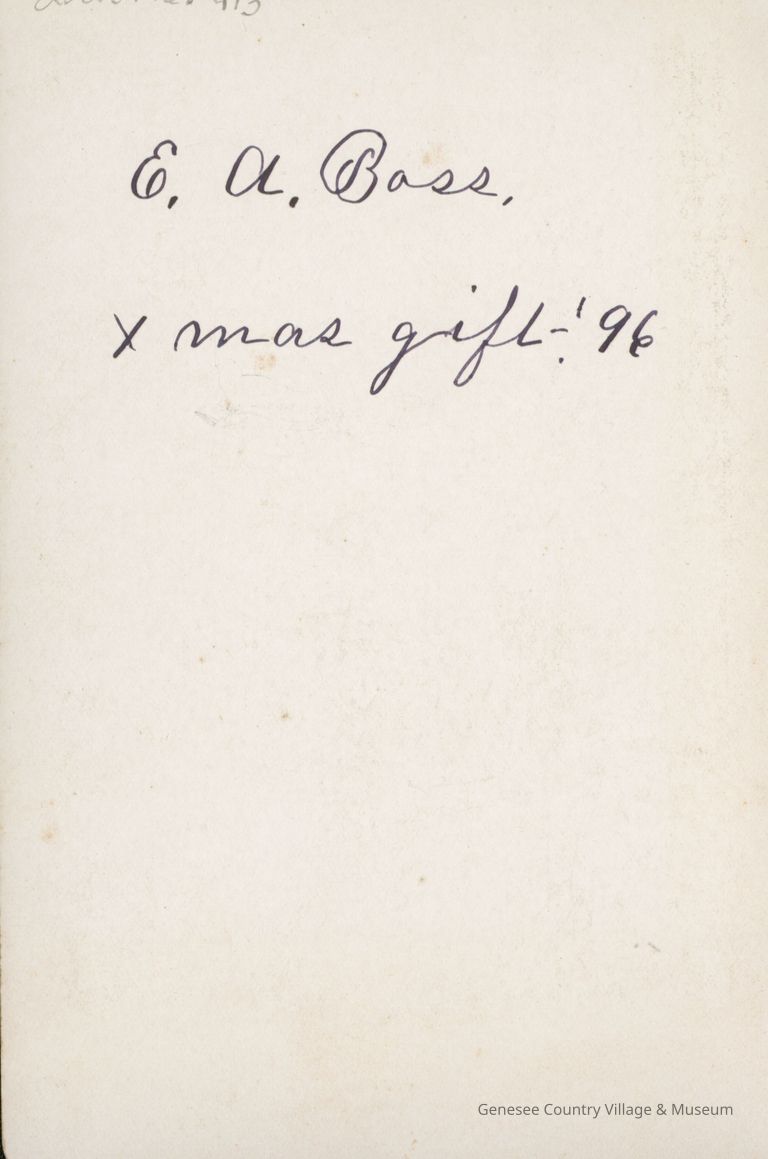 E. A. Boss.
X mas gift - '96
Genesee Country Village & Museum